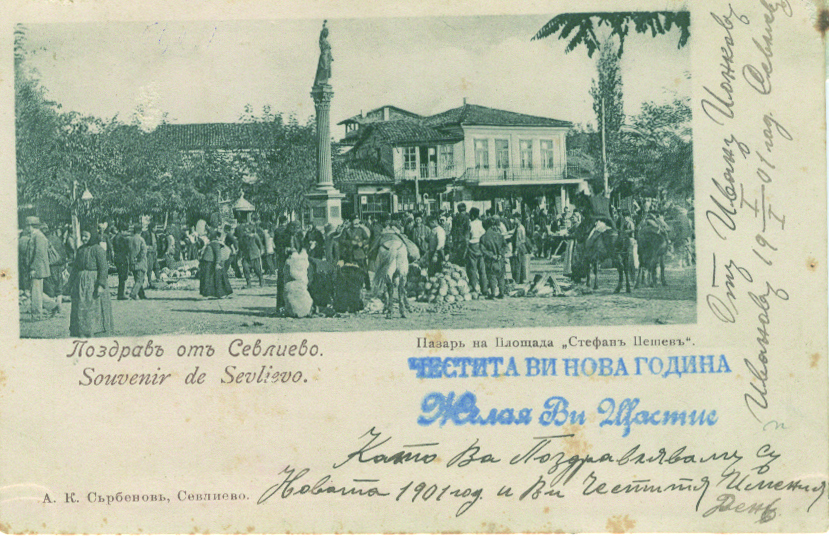 Поздравъ отъ Севлиево.
Souvenir de Sevlievo.
Пазарь на Площада „Стефанъ Пешевъ“.
ЧЕСТИТА ВИ НОВА ГОДИНА
Желая Ви Щастие
Като Ви Поздравлявамъ съ
Новата 1901 год. и Ви Честитя Имения
День
А. К. Сърбеновъ, Севлиево.
Отъ Иванъ Ионковъ
Ивановъ 19 I/I 01 год. Севлиево